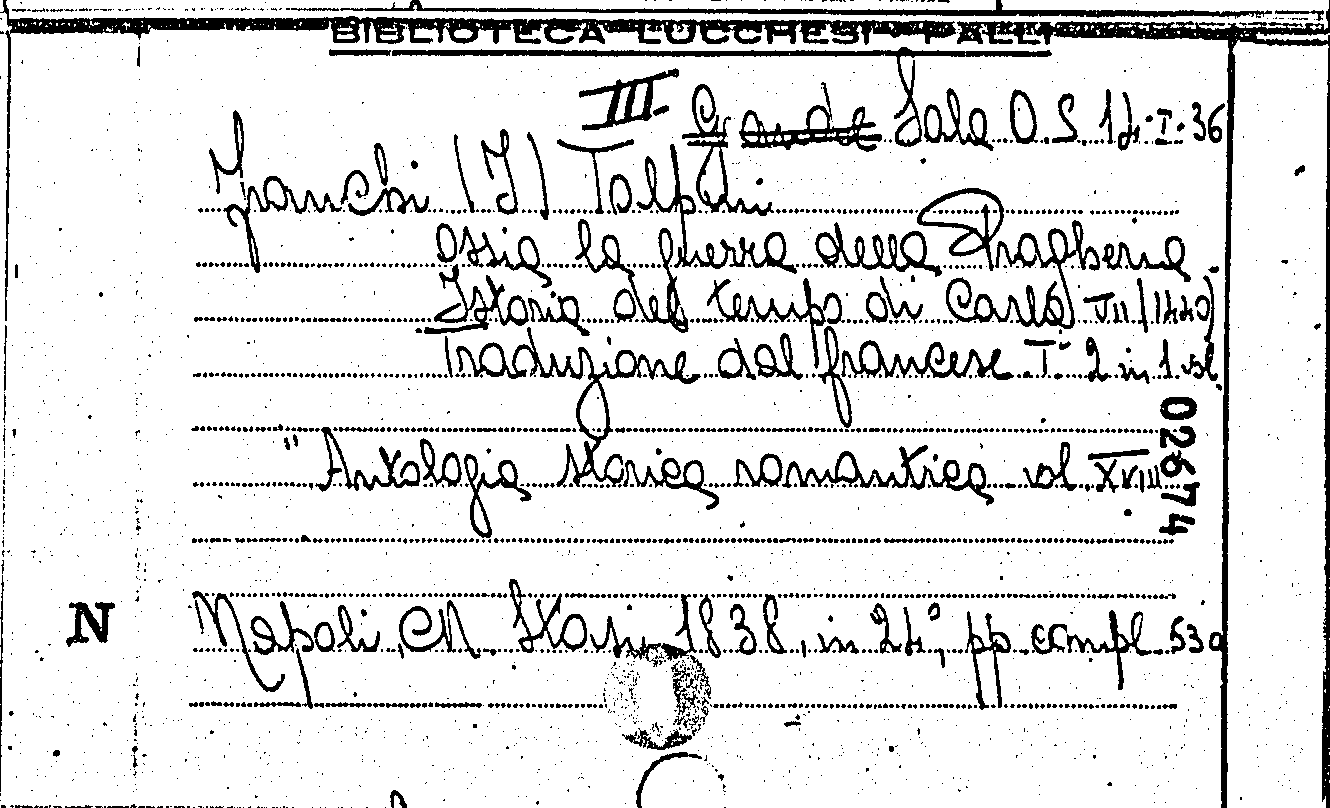 BIBLIOTECA LUCCHESI - PALLI
III Grande Sala O.S. 17.I.36
Franchi (J) Talpini
ossia la guerra della Pragheria
Istoria del tempo di Carlo VII (1440)
Traduzione dal francese. T. 2 in 1 vol.
02674
"Antologia storica romantica vol XVIII
N
Napoli, CM. Stasi, 1838, in 24°, pp. compl. 530